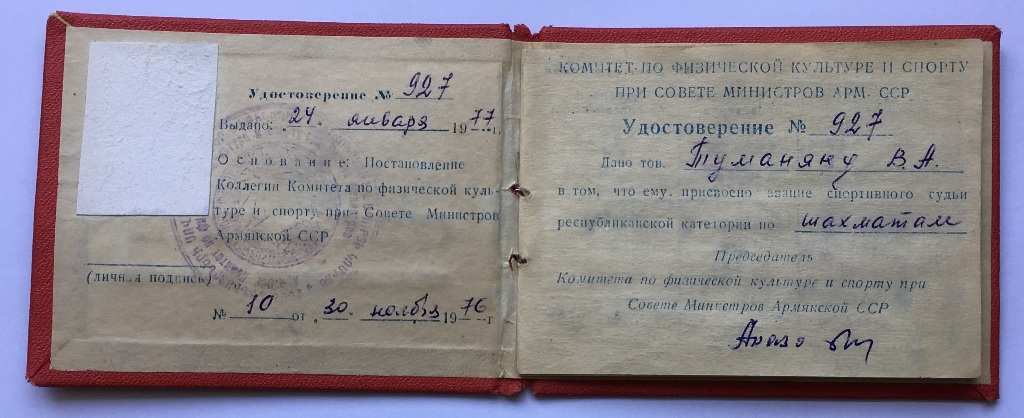 Удостоверение № 927
Выдано: 24. января 1977 г.
Основание: Постановление
Коллегии Комитета по физической куль-
туре и спорту при Совете Министров
Армянской ССР
(личная подпись)
№ 10 от 30 ноября 1976 г
КОМИТЕТ ПО ФИЗИЧЕСКОЙ КУЛЬТУРЕ И СПОРТУ
ПРИ СОВЕТЕ МИНИСТРОВ АРМ. ССР
Удостоверение № 927
Дано тов. Туманяну В. А.
в том, что ему присвоено звание спортивного судьи
республиканской категории по шахматам
Председатель
Комитета по физической культуре и спорту при
Совете Министров Армянской ССР